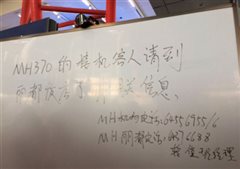 MH370的接机客人请到
丽都饭店了 信息、
MH 机构电话:64556955/6
MH 丽都电话:6437668 8
经理